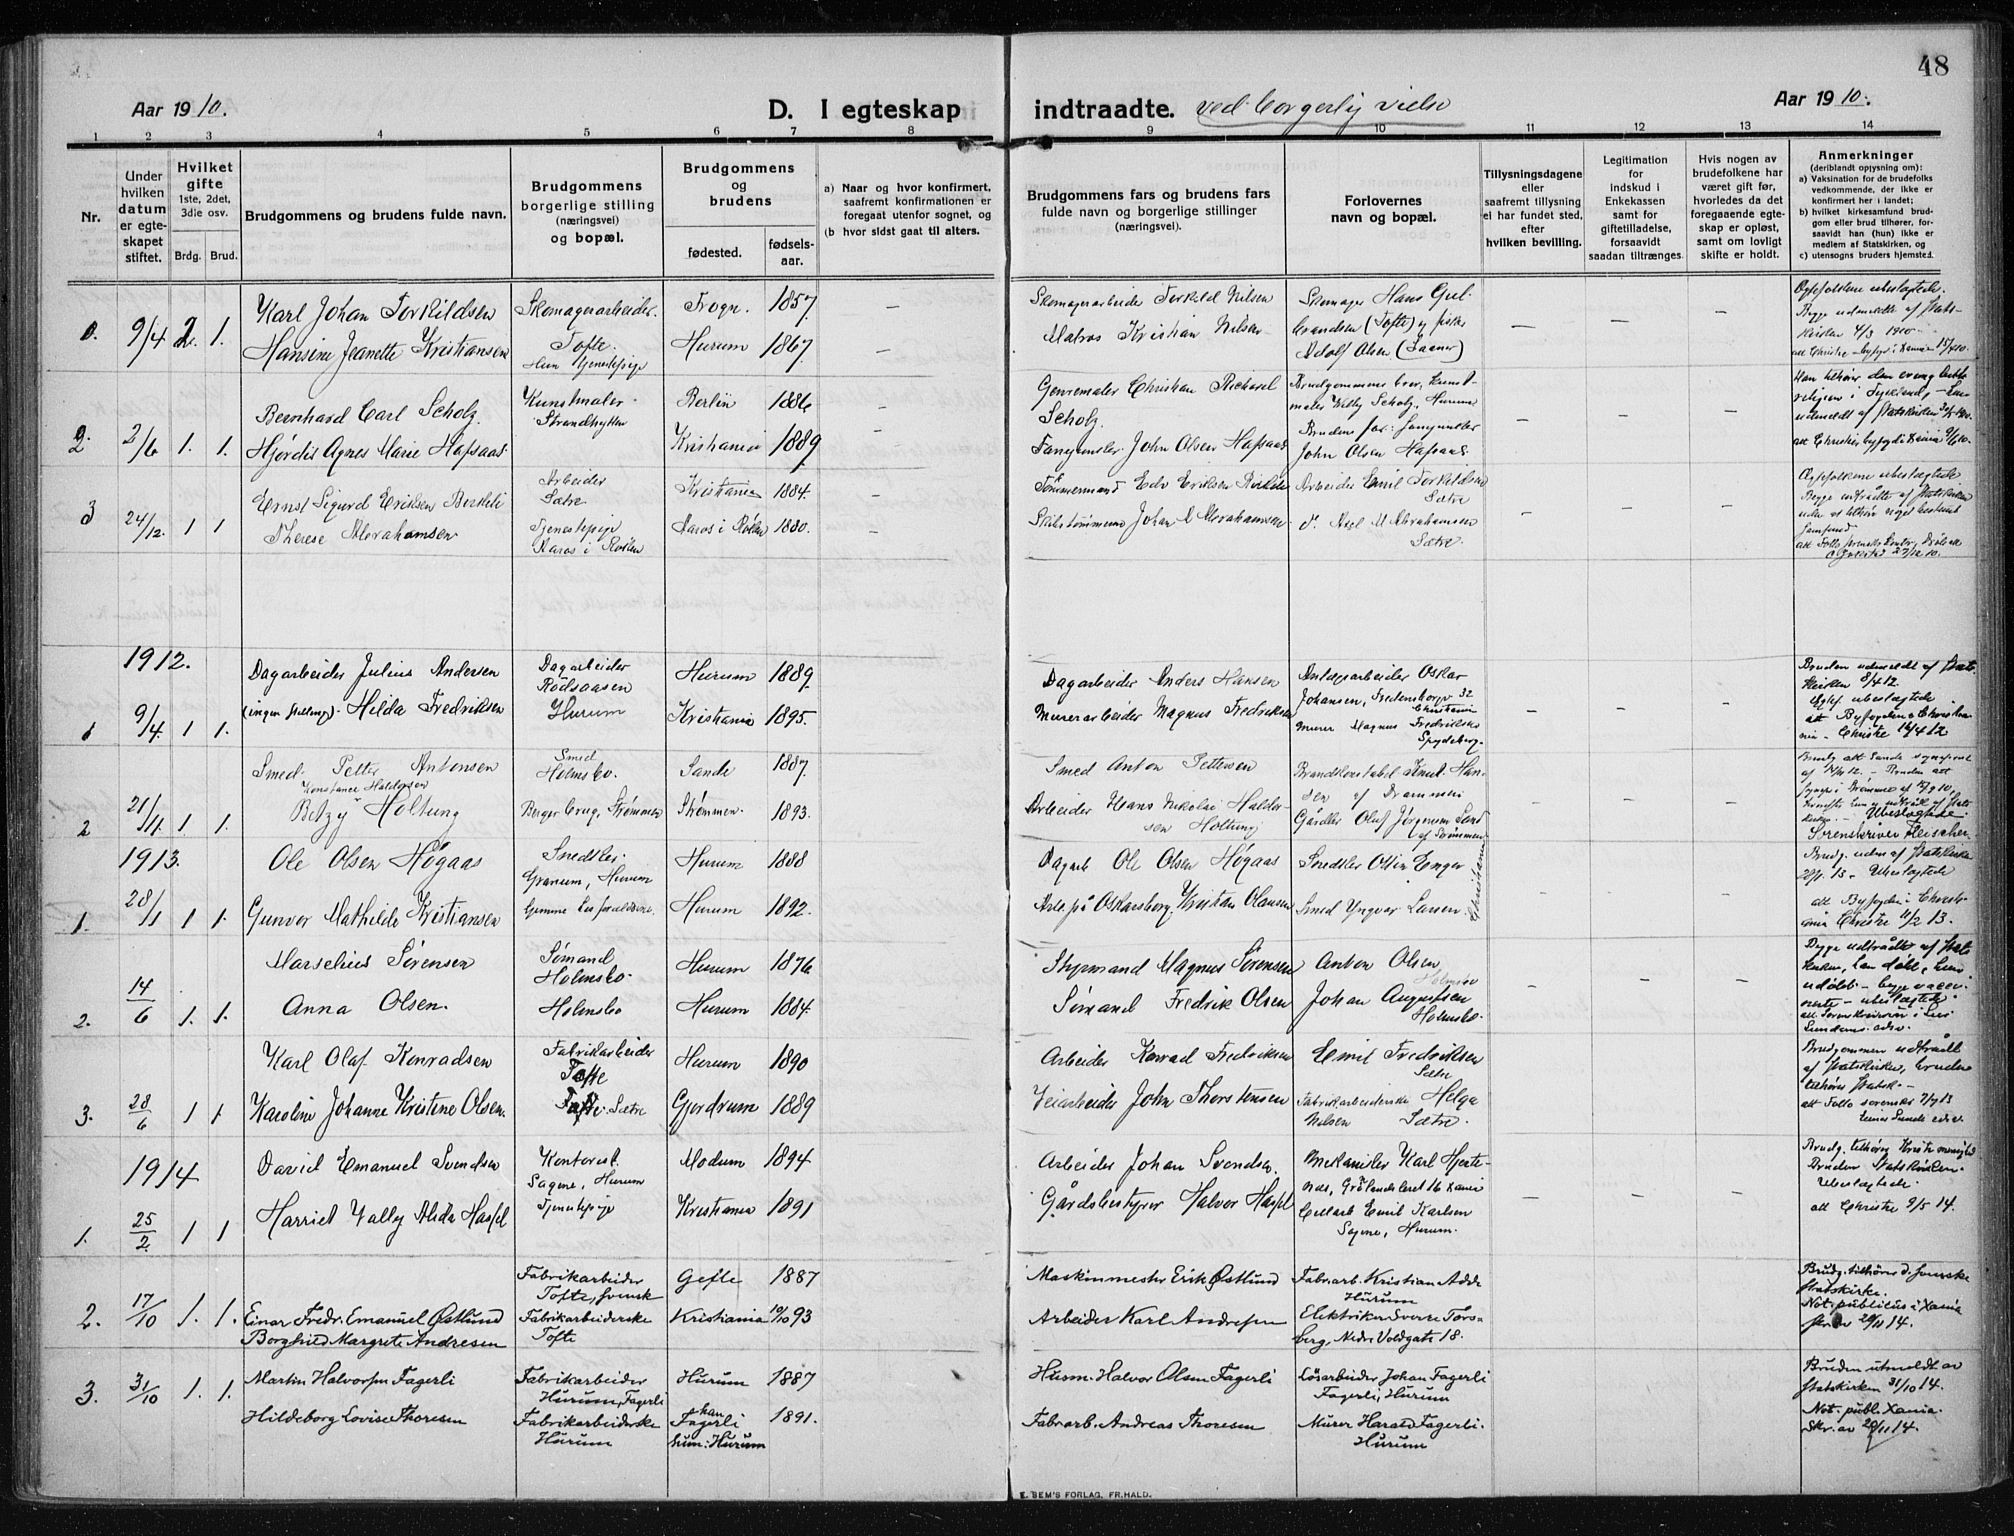 48
Aar 1910.
D. I egteskap indtraadte. ved borgerlig vielse
Aar 1910.
1 2 3 4 5 6 7 8 9 10 11 12 13 14
Nr.
Under hvilken datum er egteskapet stiftet.
Hvilket gifte 1ste, 2det, 3die osv.
Brdg. Brud.
Brudgommens og brudens fulde navn.
Brudgommens borgerlige stilling (næringsvei) og bopæl.
Brudgommens og brudens
fødested.
fødselsaar.
a) Naar og hvor konfirmert, saafremt konfirmationen er foregaat utenfor sognet, og
(b hvor sidst gaat til alters.
Brudgommens fars og brudens fars fulde navn og borgerlige stillinger (næringsvei).
Forlovernes navn og bopæl.
Tillysningsdagene eller saafremt tillysning ei har fundet sted, efter hvilken bevilling.
Legitimation for indskud i Enkekassen samt for giftetilladelse, forsaavidt saadan tiltrænges
Hvis nogen av brudefolkene har været gift før, hvorledes da det foregaaende egteskap er opløst, samt om lovligt skifte er holdt.
Anmerkninger (deriblandt opjysning om):
a) Vaksination for de brudefolks vedkommende, der ikke er konfirmert her i landet;
b) hvilket kirkesamfund brudgom eller brud tilhører, forsaavidt han (hun) ikke er medlem af Statskirken, og
c) utensogns bruders hjemsted.
9/4 2. 1.
Karl Johan Torkildsen
Skomagerarbeider.
Frogn. 1857
Skomagerarbeider Torkild Nilsen
Skomager Hans Gulbrandsen (Tofte) og fisker Adolf Olsen (Saaner)
Hansine Jeanette Kristiansen
Tofte.
Hun tjenestepige
Hurum 1867
Matros Kristian Nilsen
Egtefolkene ubeslægtede.
Begge udmeldte af Statskirken 4/3 1910
2. 2/6 1. 1.
Bernhard Carl Scholz
Kunstmaler
Strandhytten
Berlin 1886
Genremaler Christian Richard Scholz.
Brudgommens bror, kunstmaler Willy Scholz, Hurum
Hjørdis Agnes Marie Hafsaas.
Kristiania 1889
Fangformester John Olsen Hafsaas
Brudens far: John Olsen Hafsaas
3 24/12. 1 1
Ernst Sigurd Eriksen Berkeli
Arbeider
Sætre
Kristiania 1884.
Tømmermand Edv Eriksen
Arbeider Emil Torkildsen
Sætre
Therese Abrahamsen
Tjenestepige
Aaros i Røken
Aaros i Røken 1880.
Johan A Abrahamsen
Axel M Abrahamsen
Sætre.
1912.
1 9/4. 1 1.
Dagarbeider Julius Andersen
Dagarbeider
Rødsaasen
Hurum
Hurum 1889
Dagarbeider Anders Hansen
Anlægsarbeider Oskar Johansen, Fredensborgv 32 Christiania
(ingen stilling). Hilda Fredriksen
Kristiania 1895.
Murerarbeider Magnus Fredriksen
Murer Magnus Fredriksen
Spydeberg.
Bruden udmeldt af Statskirken 8/4 12.
Egtef. ubeslægtede
att Byfogden i Christiania - Christie 16/4 12
2 21/11. 1 1.
Smed Petter Antonsen
Smed
Holmsbo.
Sande 1887.
Smed Anton Pettersen
Brandkonstabel Knut Hansen af Drammen
Konstance Haldorsen
Betzy Holtung
Berger brug, Strømmen
Strømmen. 1893.
Arbeider Hans Nikolai Haldorsen Holtung
Gårdbr Olaf Jørgensen Sand af Strømmen
Ubeslægtede.
Sorenskriver Fleischer
1913.
1. 28/1 1 1.
Ole Olsen Høgaas
Snedker.
Granum, Hurum
Hurum 1888
Dagarb Ole Olsen Høgaas
Snedker Olsin Enger
Christiania
Gunvor Mathilde Kristiansen
Hjemme hos forældrene.
Hurum 1892.
Arb. på Oskarsborg, Kristian Olausen
Smed Yngvar Larsen
Brudg. udm. af Statskirken
28/1. 13. Ubeslægtede
att Byfogden i Christiania Christie 11/2 13.
2. 14/6 1. 1.
Marselius Sørensen
Sømand
Holmsbo.
Hurum 1876
Styrmand Magnus Sørensen
Anton Olsen
Holmsbo
Anna Olsen.
Holmsbo
Hurum 1884.
Sømand Fredrik Olsen
Johan Augustsen
Holmsbo.
Begge udtrådt af Statskirken, han døbt, hun udøbt - begge vaccinerte - ubeslægtede.
3. 28/6 1 1
Karl Olaf Konradsen
Fabrikarbeider
Tofte
Hurum 1890
Arbeider Konrad Fredriksen
Emil Fredriksen
Sætre
Karoline Johanne Kristine Olsen.
Sætre
Gjerdrum 1889
Veiarbeider John Thorstensen
Fabrikarbeiderske Helga Nilsen Sætre.
Brudgommen udtrådt af Statskirken, bruden tilhører Statsk. -
1914
1. 25/2. 1 1
David Emanuel Svendsen
Kontorist.
Sagene, Hurum
Modum 1894
Arbeider Johan Svendsen.
Mekaniker Karl Hjertenes, Grønlandsleret 16 Xania
Harriet Vally Alida Hassel
Tjenestepige
Kristiania 1891
Gårdsbestyrer Halvor Hassel
Cellarb Emil Karlsen
Sagene, Hurum.
Bruden Statskirken.
Ubeslægtede.
att Christie 9/5 14.
2. 17/10 1. 1.
Einar Fredr. Emanuel Østlund
Fabrikarbeider
Tofte, svensk
Gefle 1887
Maskinmester Erik Østlund
Fabr.arb. Kristian Adde
Hurum
Borghild Margrete Andresen
Fabrikarbeiderske
Tofte
Kristiania 10/10 93
Arbeider Karl Andresen
Elektriker Sverre Torsberg, Nedre Voldgate 18.
Brudg. tilhører d. svenske statskirke.
Not. publicus i Xania
skr. av 20/11 14.
3. 31/10 1. 1.
Martin Halvorsen Fagerli
Fabrikarbeider
Hurum, Fagerli
Hurum 1887
Husm. Halvor Olsen Fagerli
Løsarbeider Johan Fagerli
Fagerli, Hurum
Hildeborg Lovise Thoresen
Fabrikarbeiderske
Hurum
Fagerli
Hurum 1891.
Fabr.arb. Andreas Thoresen
Murer Harald Fagerli.
Hurum
Bruden utmeldt av statskirken 31/10 14.
Not. publ. Xania.
Skr. av 20/11 14.
E. SEM'S FORLAG, FR.HALD.